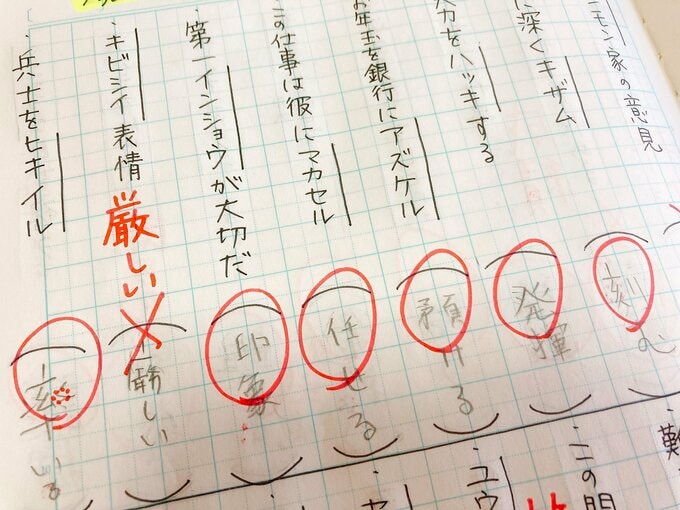 モン家の意見
に深くキザム
力をハッキする
お年玉を銀行にアズケル
この仕事は彼にマカセル
・第一インショウが大切だ
・キビシイ表情
厳しい
・兵士をヒキイル
刻む
発揮
預ける
任せる
印象
率いる
難
・この問
・ユウ